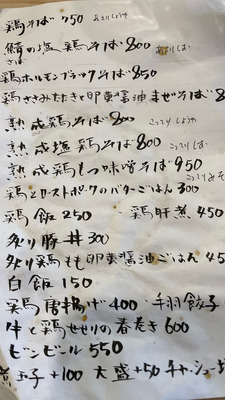 鶏そば 750 あっさりしょうゆ
鯖の塩鶏そば 800 あっさりしお
さば
鶏ホルモンブラックそば 850
鶏ささみたたきと卵黄醤油まぜそば 8
熟成鶏そば 800 こってりしょうゆ
熟成塩鶏そば 800 こってりしお
熟成鶏もつ味噌そば 950 こってりみそ
鶏とローストポークのバターごはん 300
鶏飯 250 ・鶏肝煮 450
炙り豚丼 300
炙り鶏もも卵黄醤油ごはん 45
白飯 150
鶏唐揚げ 400 ・手羽餃子
牛と鶏せせりの春巻き 600
ビンビール 550
玉子 +100 大盛 +50 チャーシュー